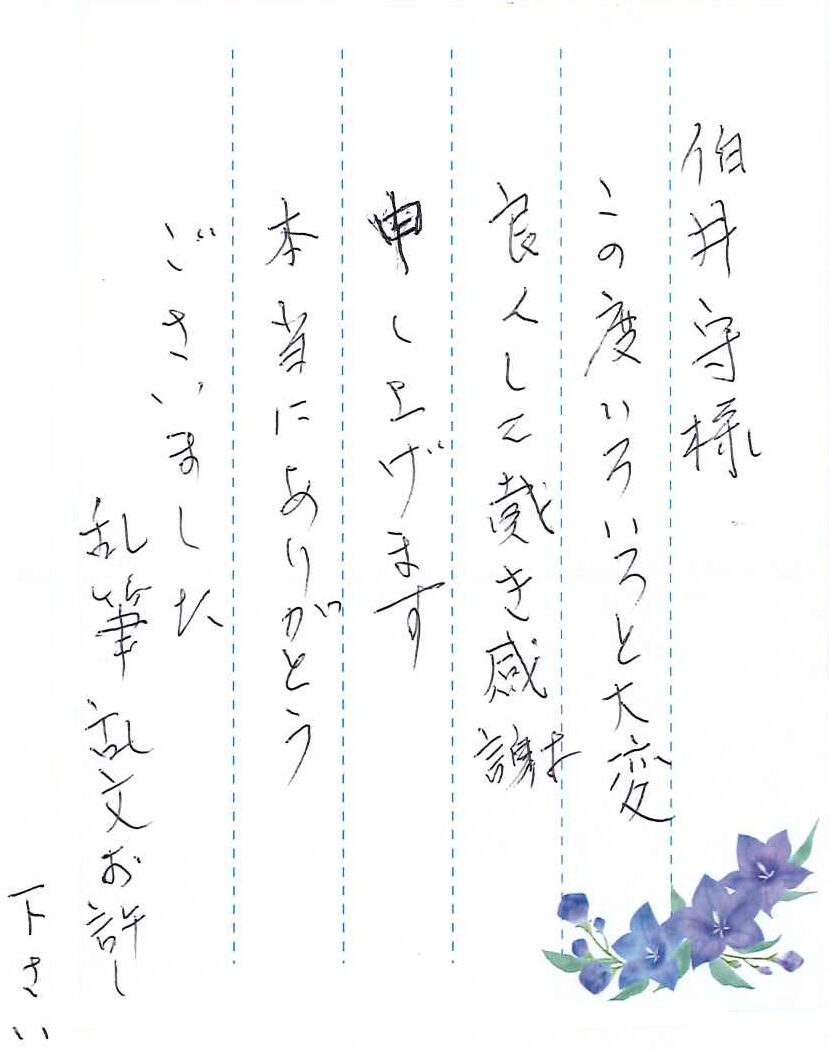 伯井守様
この度いろいろと大変
良くして戴き感謝
申し上げます
本当にありがとう
ございました
乱筆乱文お許し
下さい